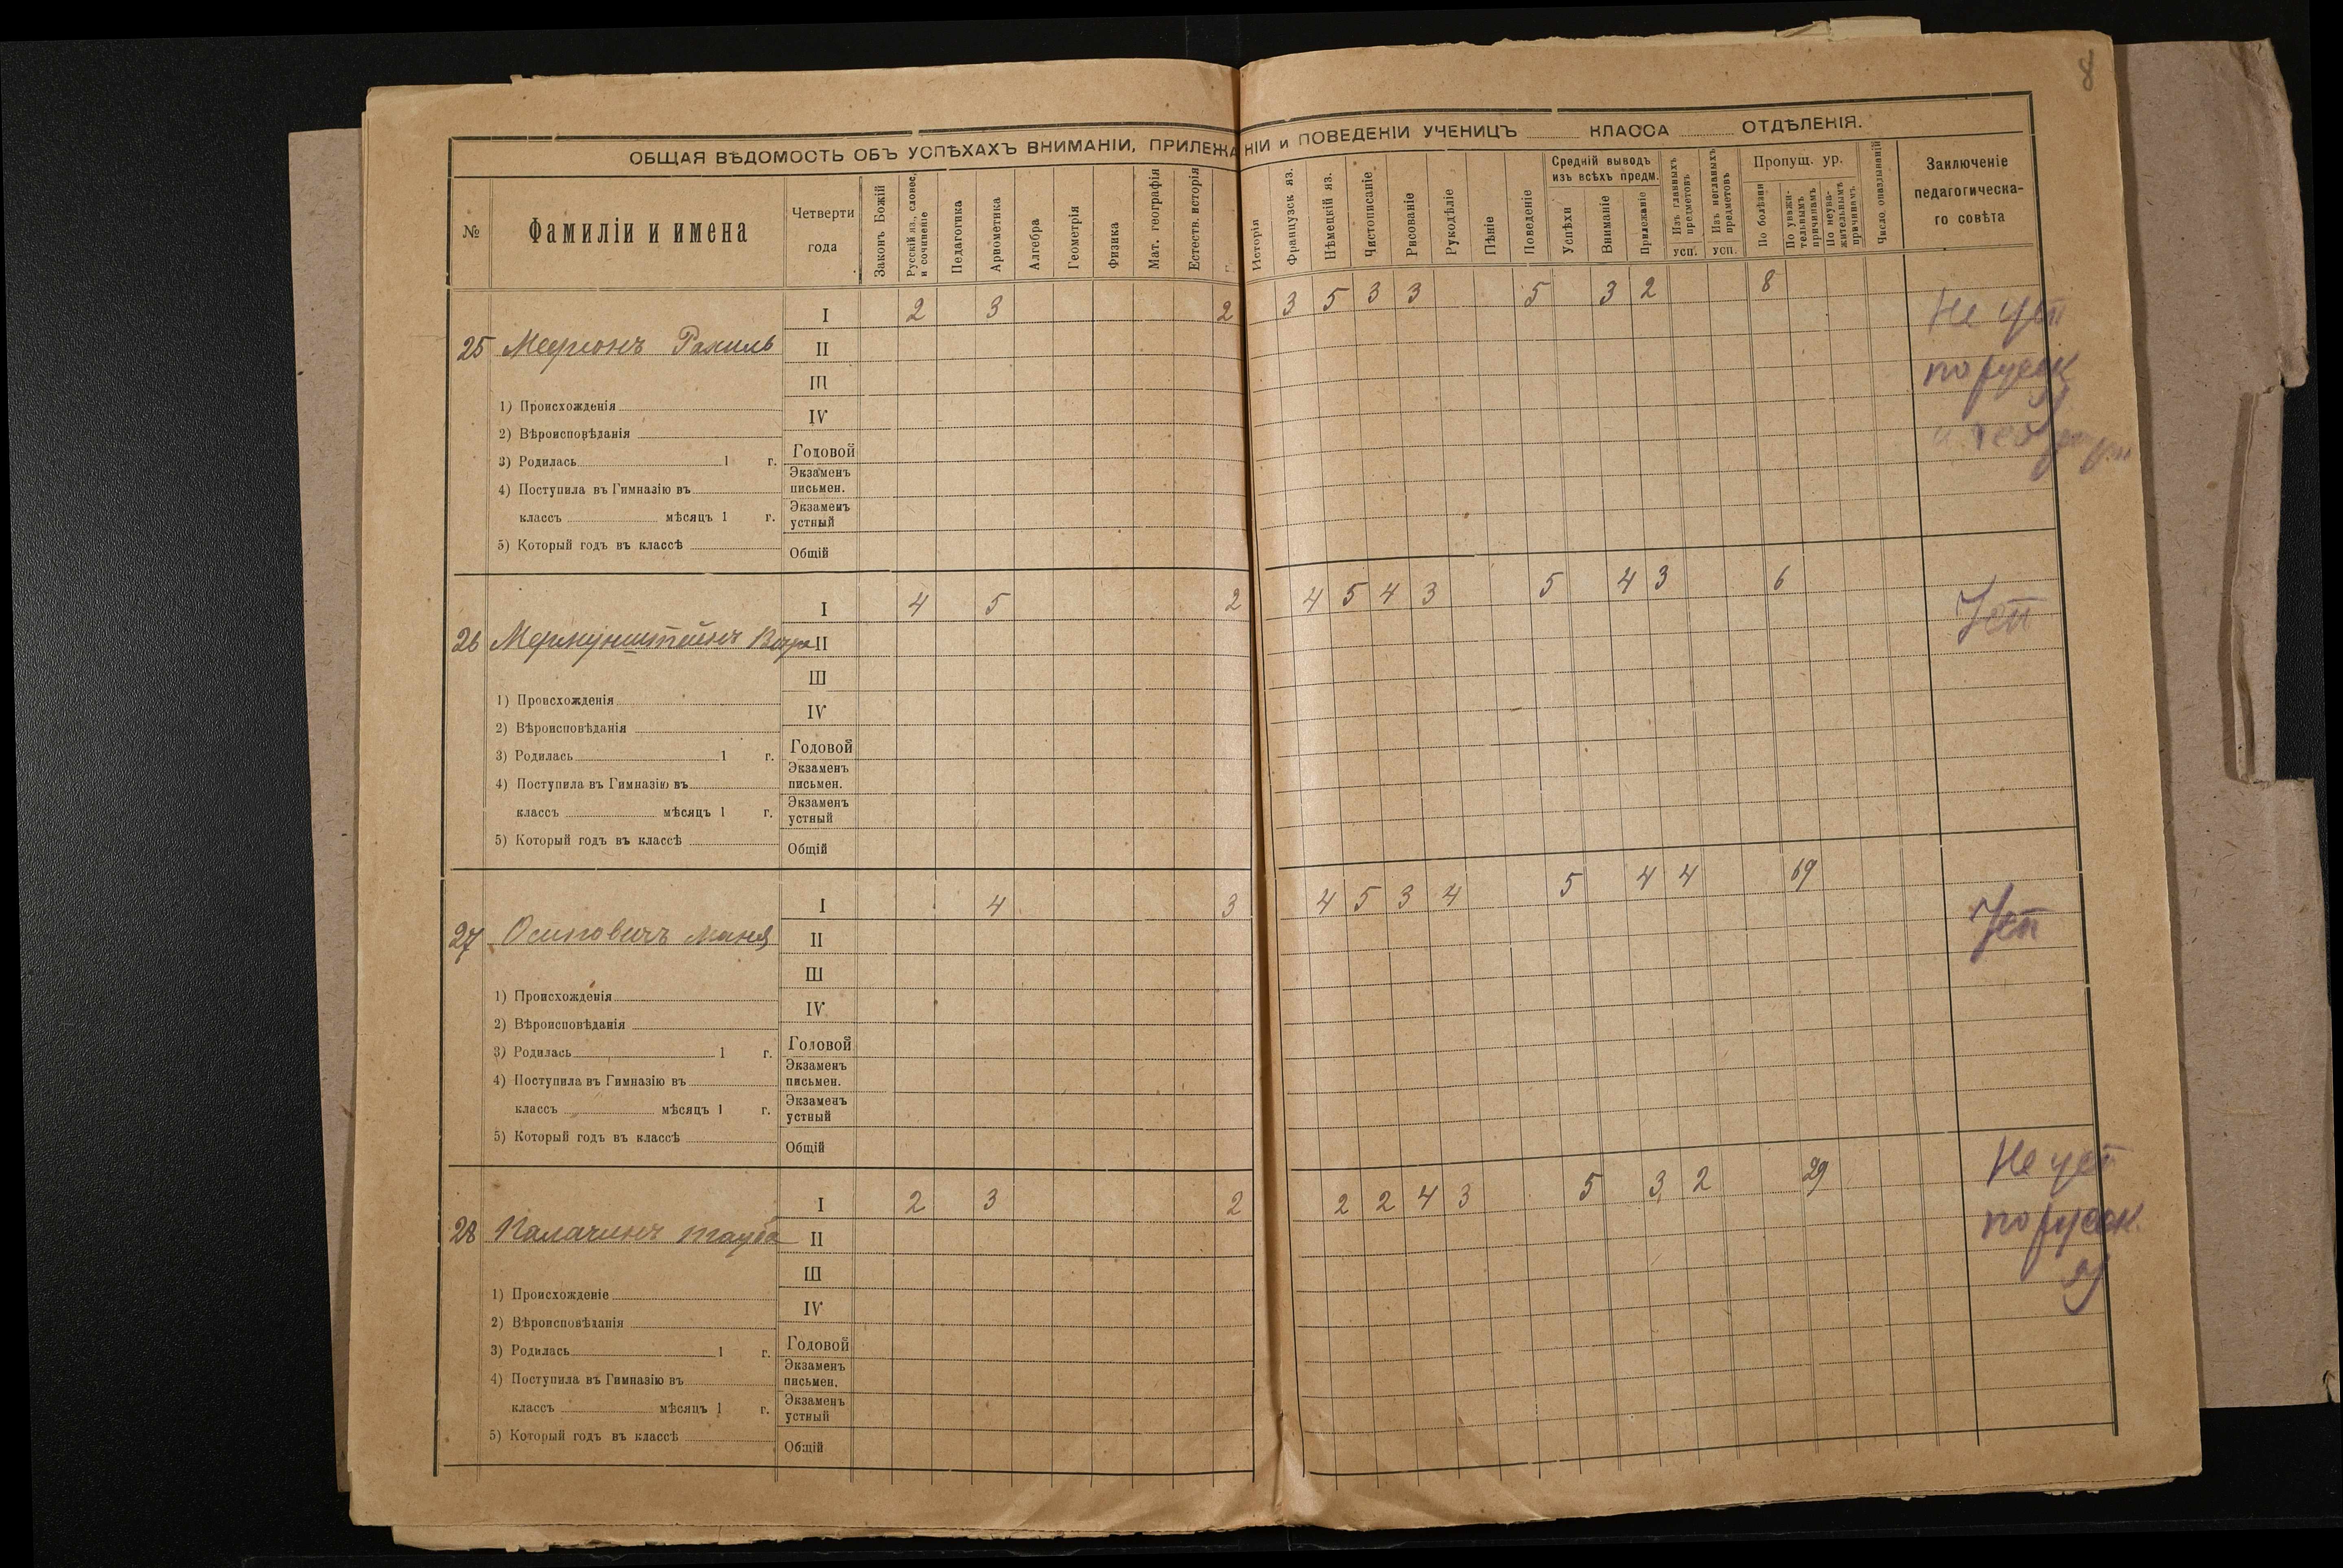 8
ОБЩАЯ ВѢДОМОСТЬ ОБЪ УСПѢХАХЪ ВНИМАНІИ, ПРИЛЕЖАНІИ и ПОВЕДЕНІИ УЧЕНИЦЪ КЛАССА ОТДѢЛЕНІЯ.
№
Фамиліи и имена
Четверти года
Законъ Божій
Русскій яз., словес. и сочиненіе
Педагогика
Ариѳметика
Алгебра
Геометрія
Физика
Мат. географія
Естеств. исторія
Исторія
Французск. яз.
Нѣмецкій яз.
Чистописаніе
Рисованіе
Рукодѣліе
Пѣніе
Поведеніе
Средній выводъ изъ всѣхъ предм.
Успѣхи
Вниманіе
Прилежаніе
Изъ главныхъ предметовъ
усп.
Изъ неглавныхъ предметовъ
усп.
Пропущ. ур.
По болѣзни
По уважительнымъ причинамъ
По неуважительнымъ причинамъ
Число опаздываній
Заключеніе педагогическаго совѣта
25
I 2 3 2 3 5 3 3 5 3 2 8
Не усп
по русск
II
III
1) Происхожденія
IV
2) Вѣроисповѣданія
Годовой
3) Родилась 1 г.
Экзаменъ письмен.
4) Поступила въ Гимназію въ
Экзаменъ устный
классъ мѣсяцъ 1 г.
5) Который годъ въ классѣ
Общій
26
I 4 5 2 4 5 4 3 5 4 3 6
Усп
II
III
1) Происхожденія
IV
2) Вѣроисповѣданія
Годовой
3) Родилась 1 г.
Экзаменъ письмен.
4) Поступила въ Гимназію въ
Экзаменъ устный
классъ мѣсяцъ 1 г.
5) Который годъ въ классѣ
Общій
27 Осиповичъ Маня
I 4 3 4 5 3 4 5 4 4 69
Усп
II
III
1) Происхожденія
IV
2) Вѣроисповѣданія
Годовой
3) Родилась 1 г.
Экзаменъ письмен.
4) Поступила въ Гимназію въ
Экзаменъ устный
классъ мѣсяцъ 1 г.
5) Который годъ въ классѣ
Общій
28 Палачинъ Тауба
I 2 3 2 2 2 4 3 5 3 2 29
Не усп
по русск.
II
III
1) Происхожденіе
IV
2) Вѣроисповѣданія
Годовой
3) Родилась 1 г.
Экзаменъ письмен.
4) Поступила въ Гимназію въ
Экзаменъ устный
классъ мѣсяцъ 1 г.
5) Который годъ въ классѣ
Общій